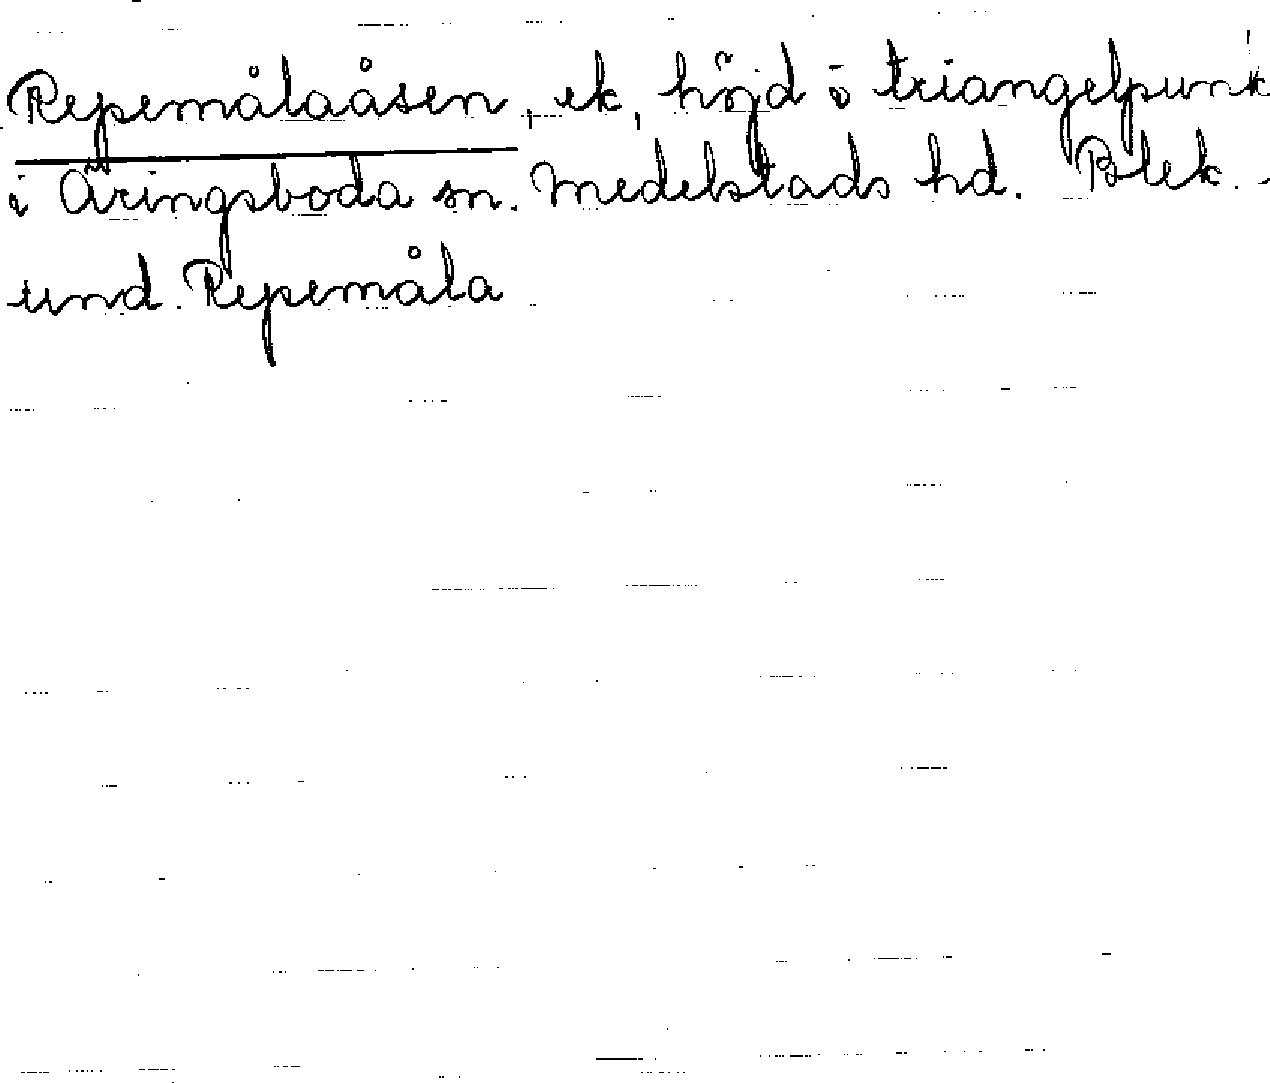 Repemålaåsen, ek, höjd o triangelpunk
i Äringsboda sn. Medelstads hd. Blek.
und. Repemåla